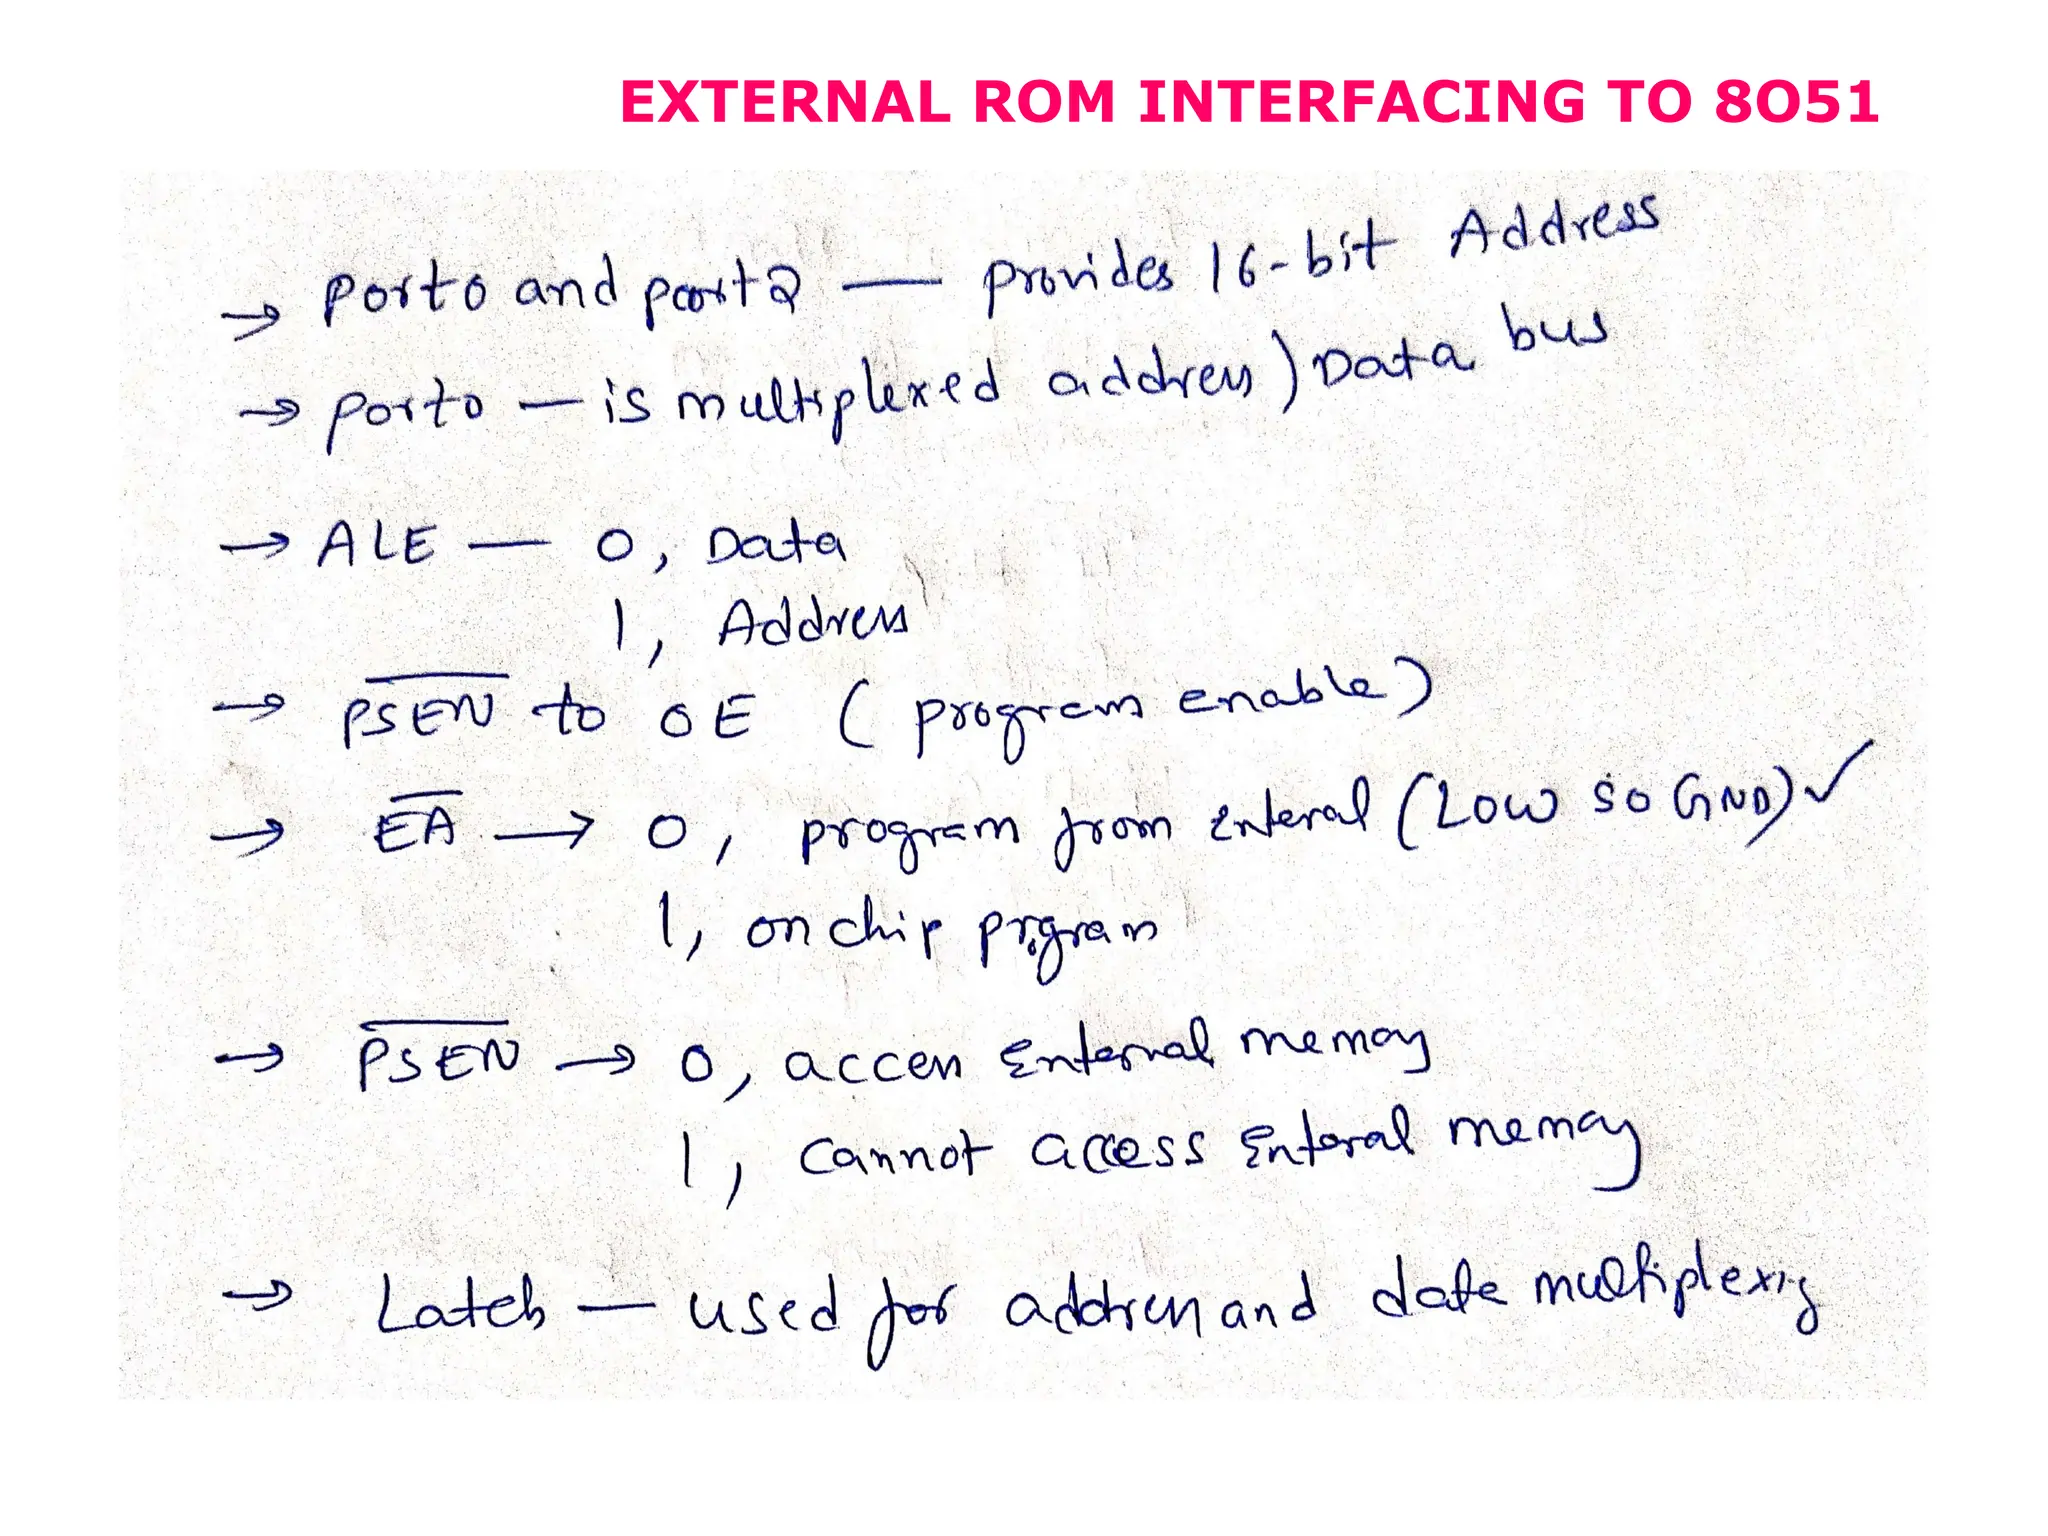 EXTERNAL ROM INTERFACING TO 8O51
→ Port0 and port2 — provides 16-bit Address
→ port0 — is multiplexed address) Data bus
→ ALE — 0, Data
1, Address
→ P̅S̅E̅N̅ to OE (program enable)
→ E̅A̅ → 0, program from external (Low so GND) ✓
1, on chip program
→ P̅S̅E̅N̅ → 0, access External memory
1, cannot access External memory
→ Latch — used for address and data multiplexing